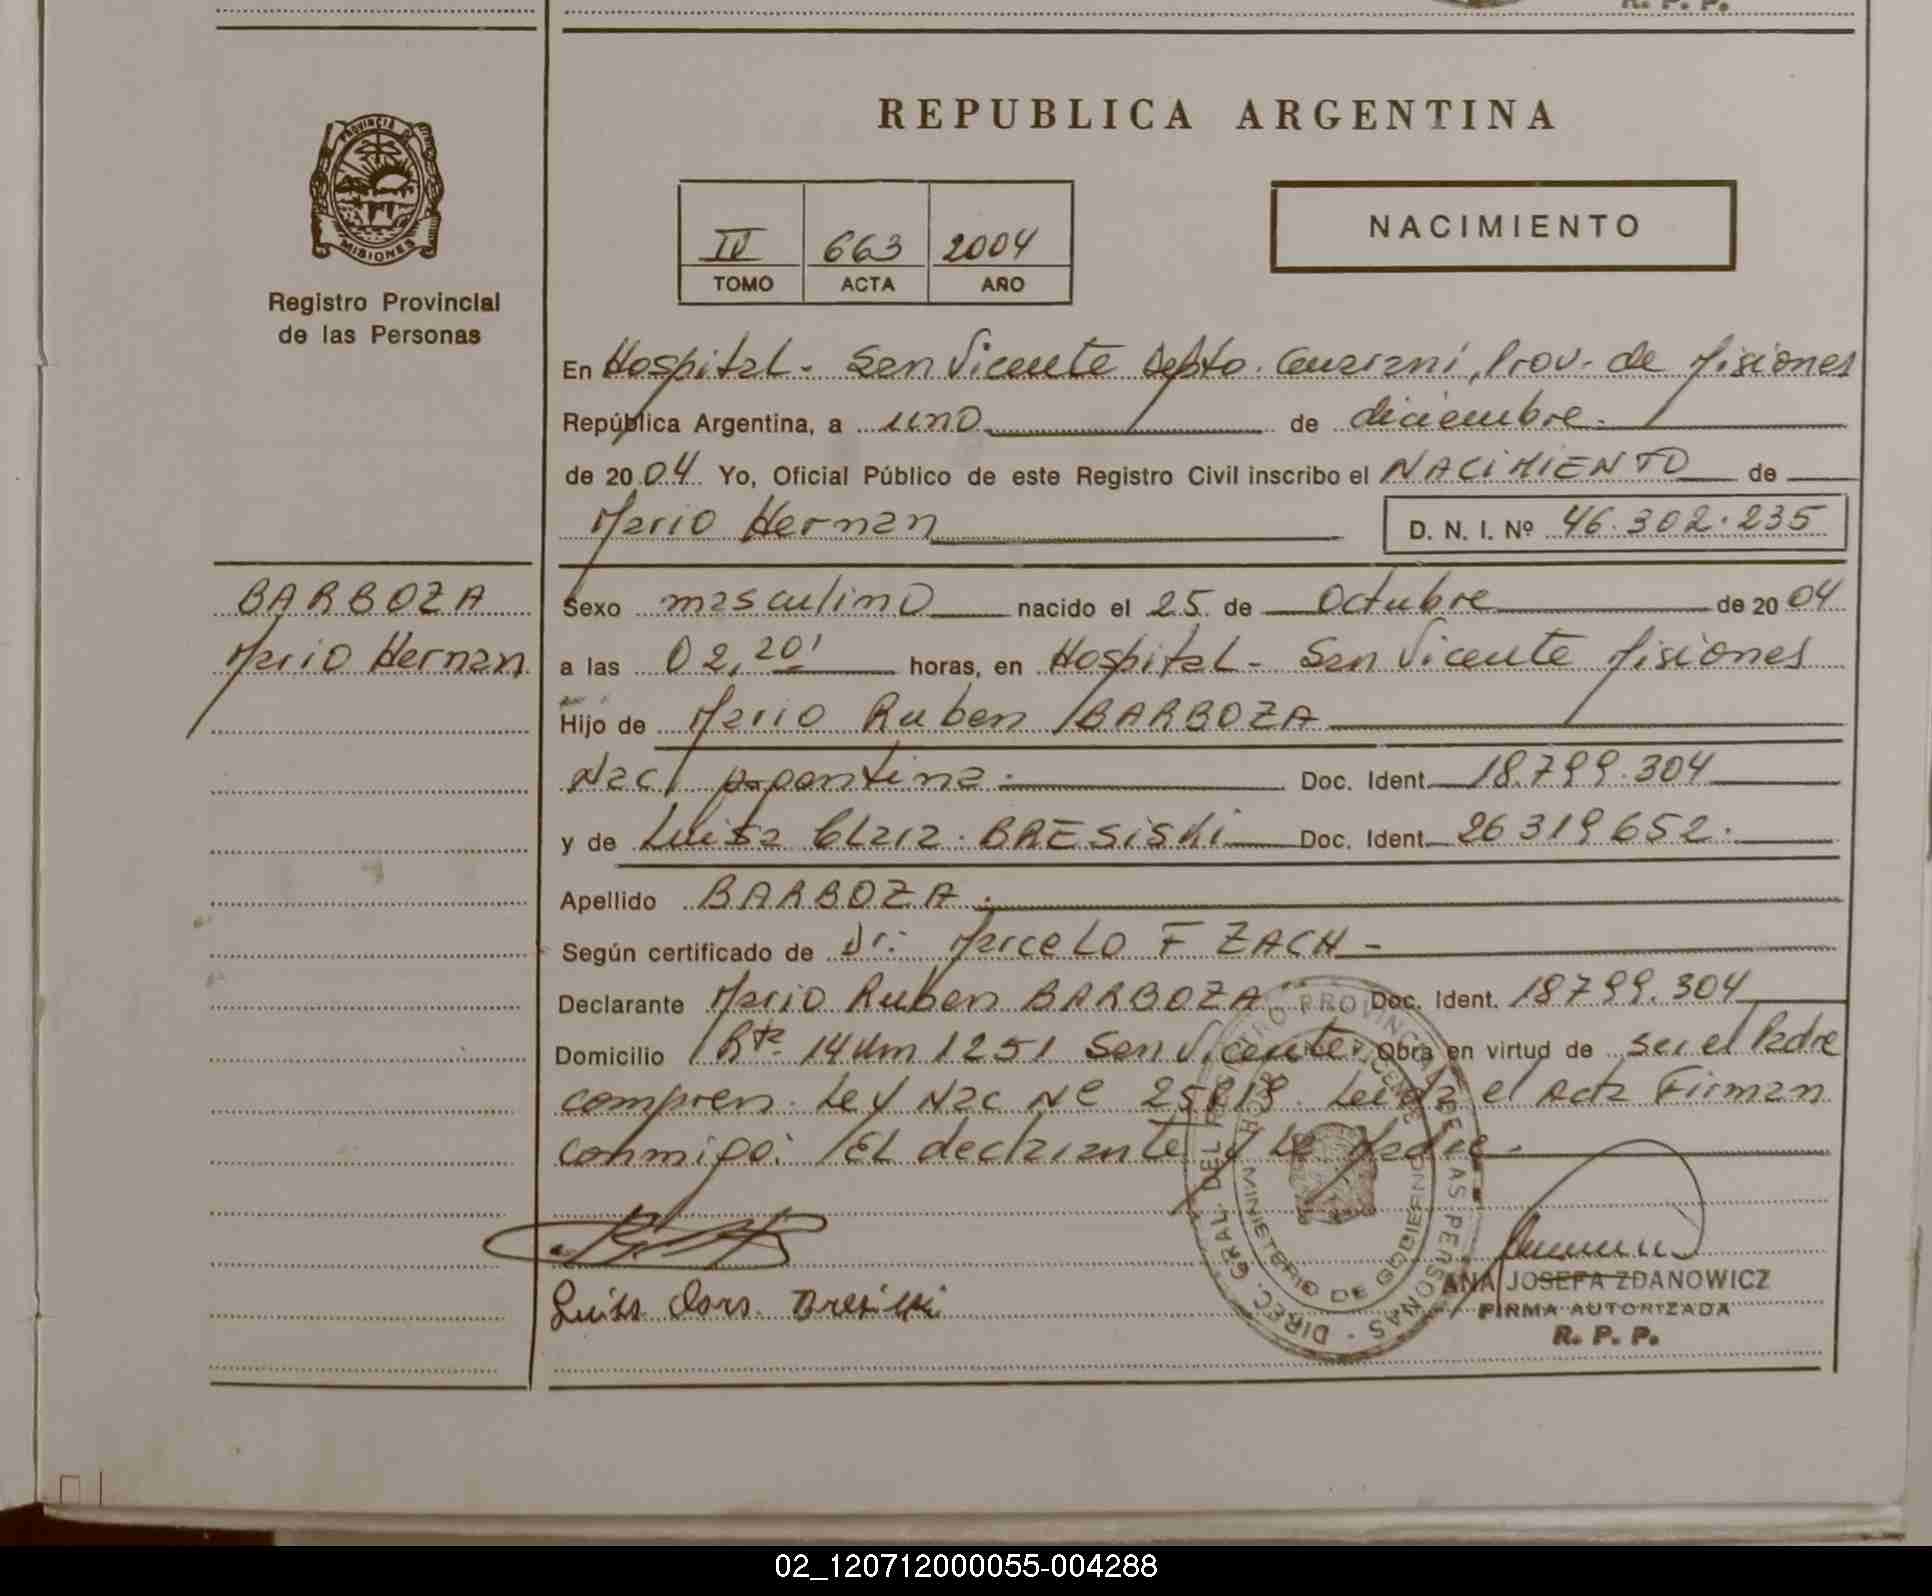 R. P. P.
REPUBLICA ARGENTINA
PROVINCIA DE
MISIONES
Registro Provincial
de las Personas
IV 663 2004
TOMO ACTA AÑO
NACIMIENTO
En Hospital - San Vicente Depto. Guarani, Prov. de Misiones
República Argentina, a uno de diciembre.
de 2004 Yo, Oficial Público de este Registro Civil inscribo el NACIMIENTO de
Mario Hernan D. N. I. Nº 46.302.235
BARBOZA
Mario Hernan
Sexo masculino nacido el 25 de Octubre de 2004
a las 02,20' horas, en Hospital - San Vicente Misiones
Hijo de Mario Ruben BARBOZA
Nac/ argentina. Doc. Ident. 18.799.304
y de Luisa Clara. BRESISKI Doc. Ident. 26319652.
Apellido BARBOZA.
Según certificado de Dr. Marcelo F ZACH -
Declarante Mario Ruben BARBOZA Doc. Ident. 18799.304
Domicilio Rta. 14 km 1251 San Vicente. Obra en virtud de ser el Padre
compren. Ley Nac Nº 25818. Leida el Acta Firman
conmigo: El declarante y la Madre.
DIREC. GRAL. DEL REGISTRO PROVINCIAL DE LAS PERSONAS
MINISTERIO DE GOBIERNO
Luisa Bresiski
ANA JOSEFA ZDANOWICZ
FIRMA AUTORIZADA
R. P. P.
02_120712000055-004288